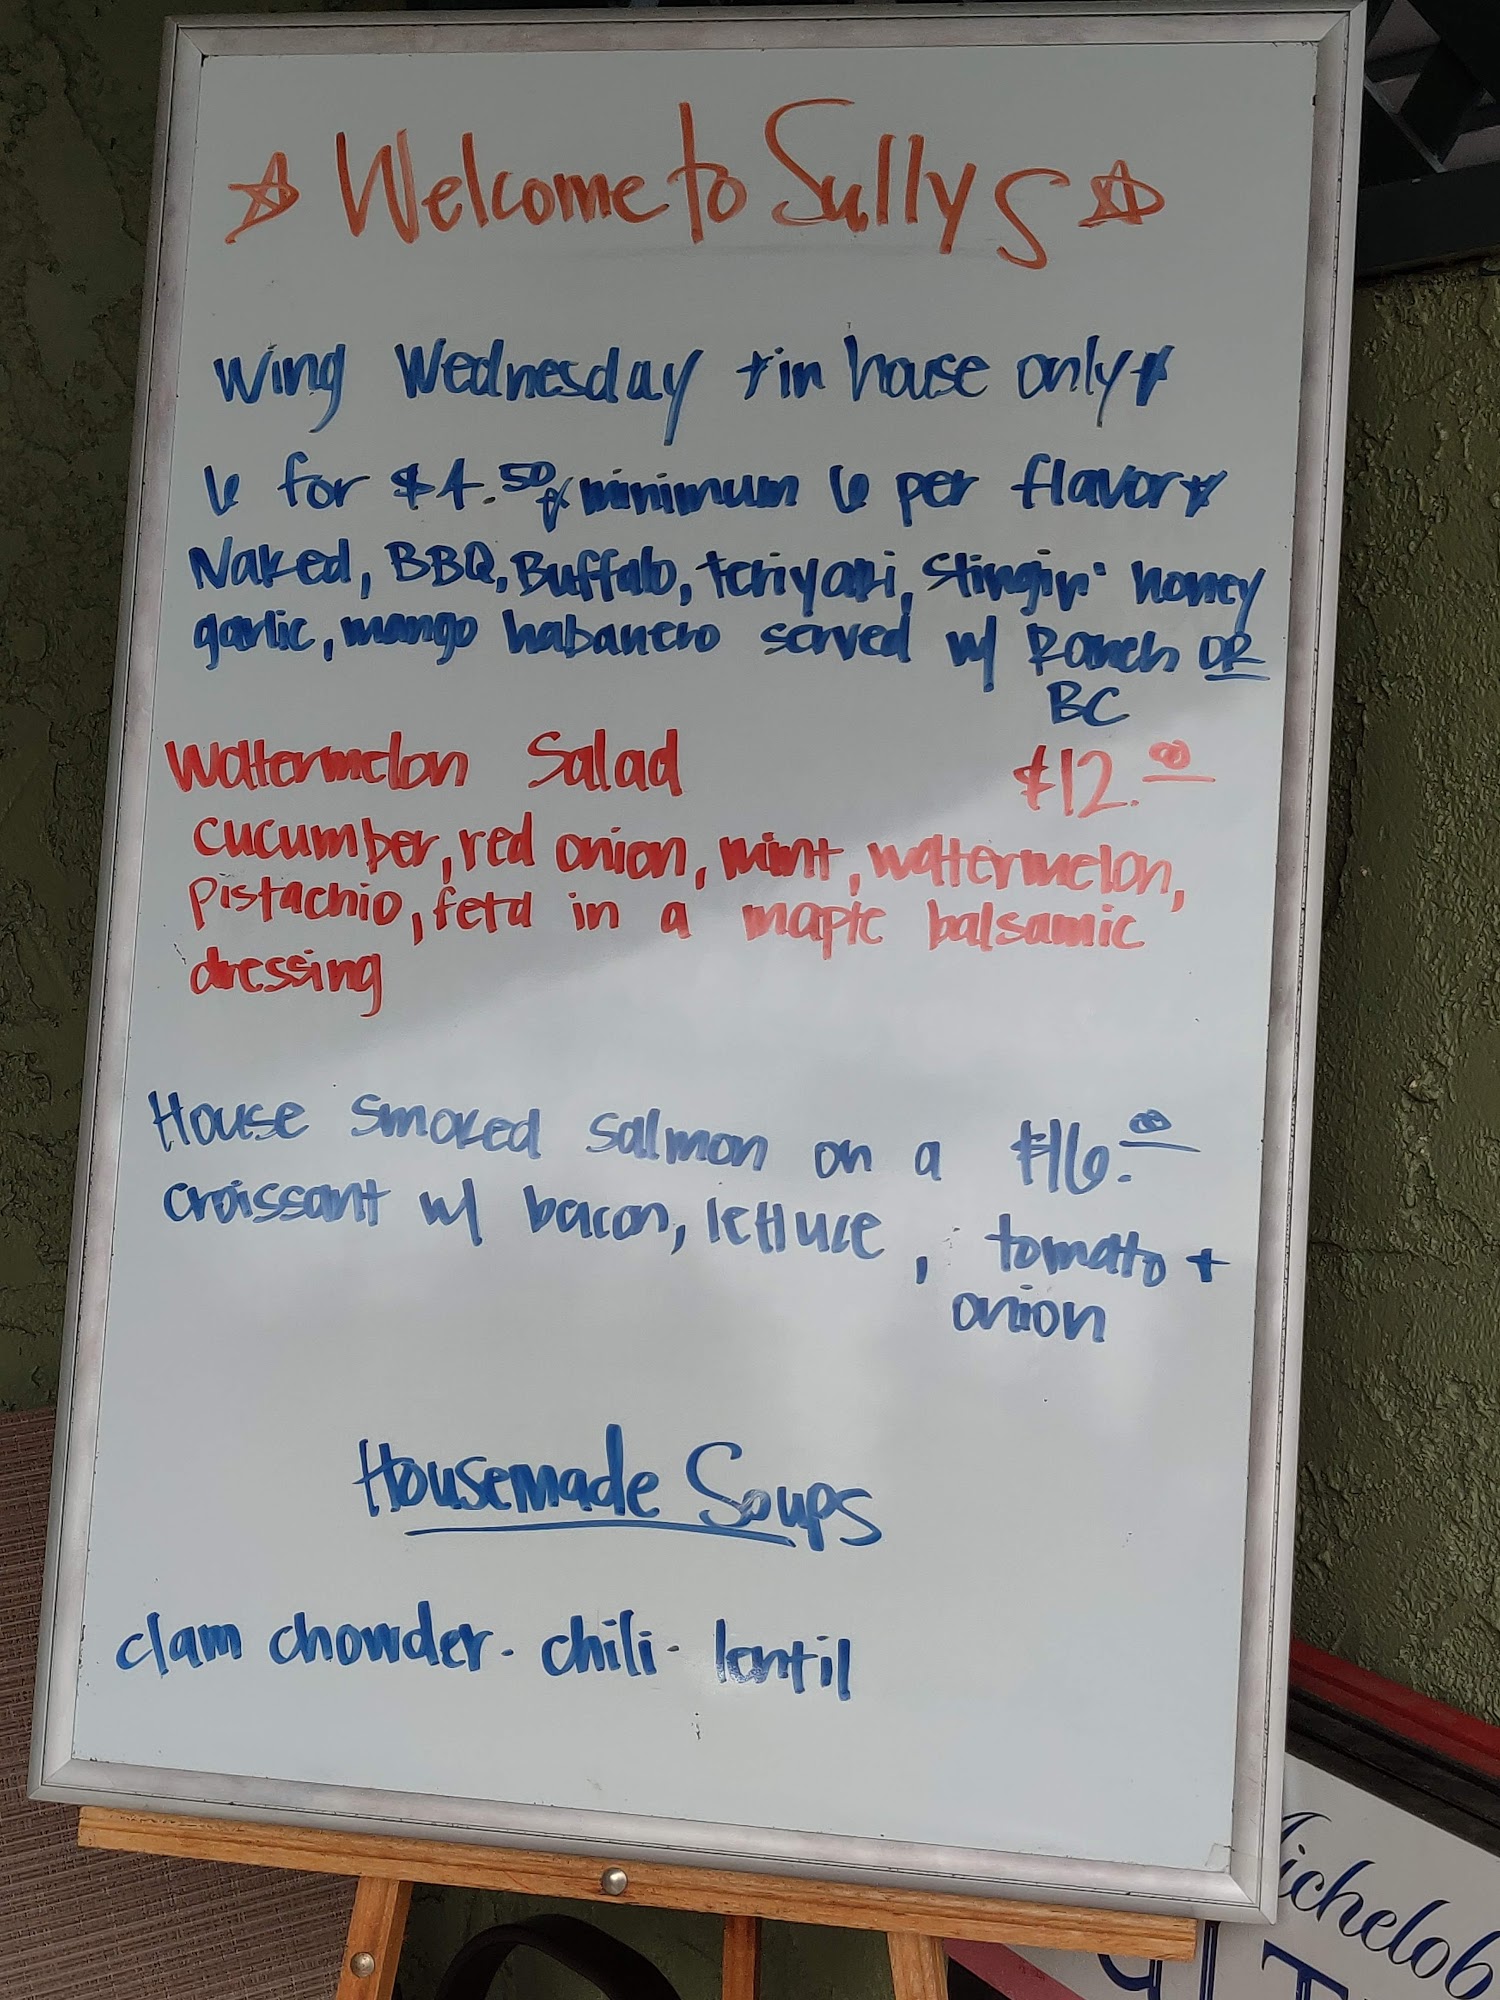 Welcome to Sullys
Wing Wednesday *in house only*
6 for $4.50 *minimum 6 per flavor*
Naked, BBQ, Buffalo, teriyaki, Stingin' honey
garlic, mango habanero served w/ Ranch OR
BC
Watermelon Salad $12.00
cucumber, red onion, mint, watermelon,
pistachio, feta in a maple balsamic
dressing
House smoked salmon on a $16.00
croissant w/ bacon, lettuce, tomato +
onion
Housemade Soups
clam chowder - chili - lentil
Michelob